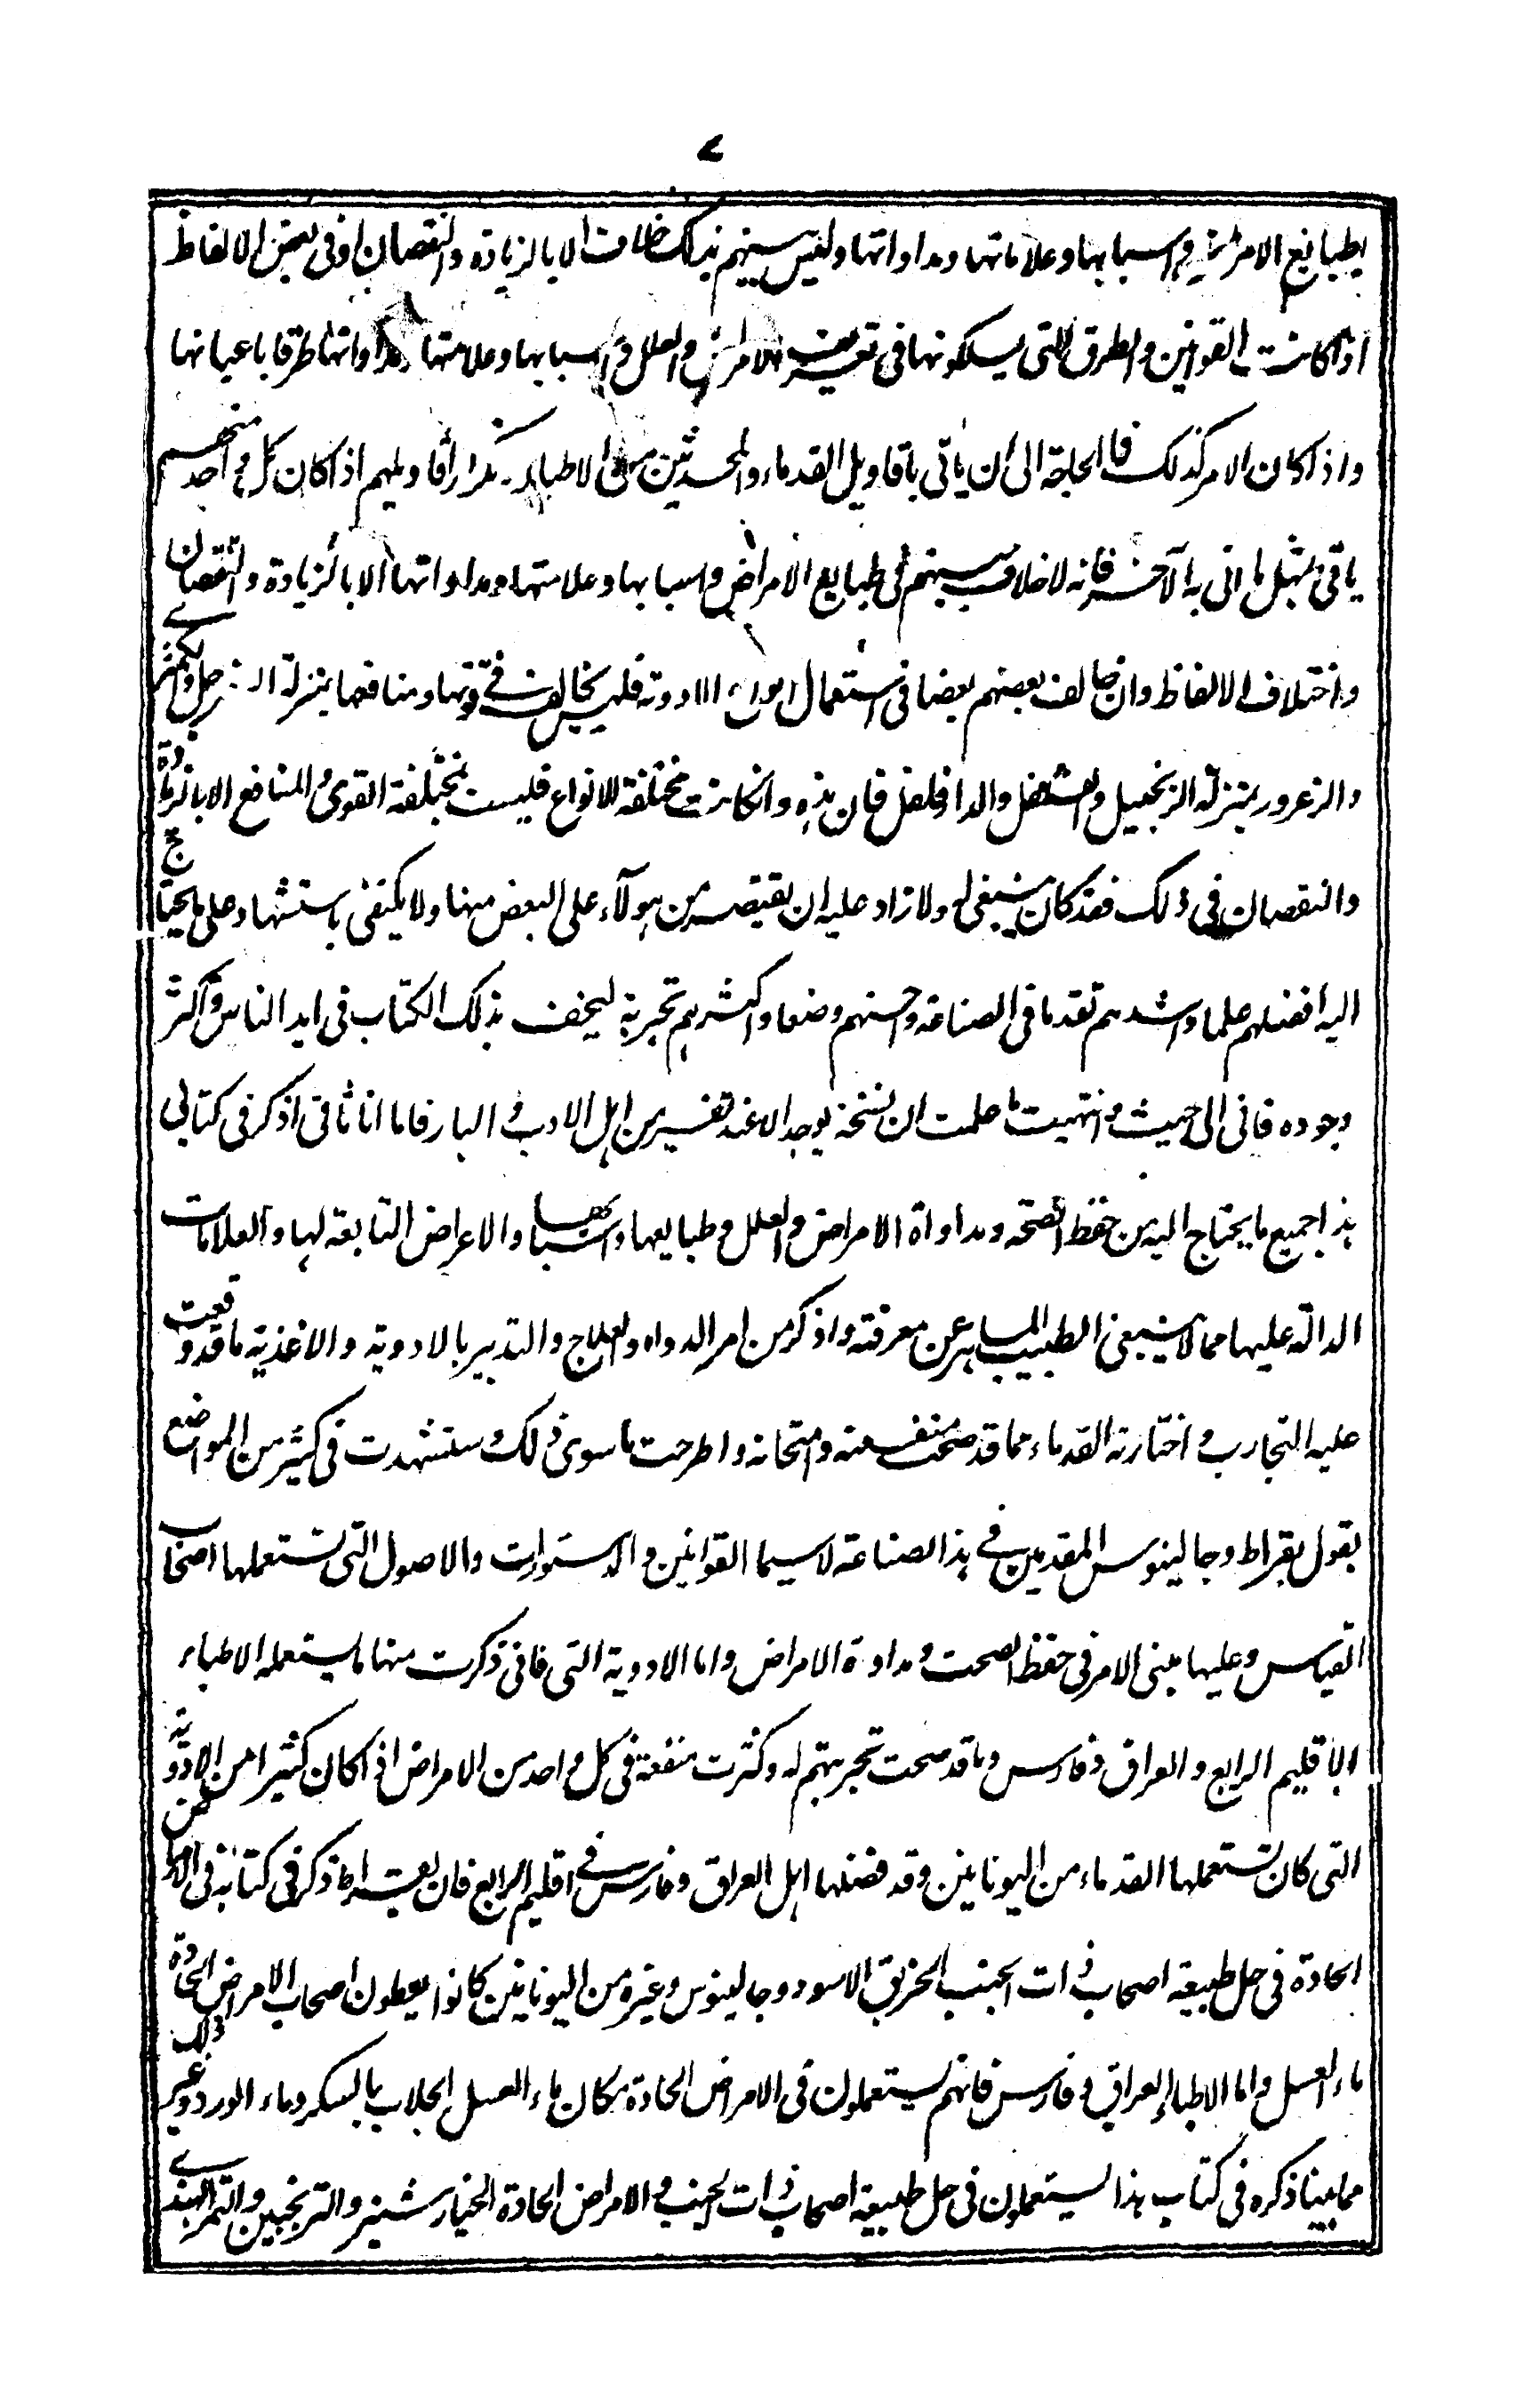 ٧
بطبایع الامراض و اسبابها و علاماتها و مداواتها و لیس بینهم بذلک خلاف الا بالزیادة و النقصان او فی بعض الالفاظ
اذ کانت القوانین و الطرق التی یسلکونها فی تعریف الامراض و العلل و اسبابها و علامتها و مداواتها طرقا باعیانها
و اذا کان الامر کذلک فما الحاجة الی ان یأتی باقاویل القدماء و المحدثین من الاطباء تکرار أقاویلهم اذ کان کل واحد منهم
یأتی بمثل ما اتی به الآخر فانه لا خلاف بینهم فی طبایع الامراض و اسبابها و علامتها و مداواتها الا بالزیادة و النقصان
و اختلاف الالفاظ و ان خالف بعضهم بعضا فی استعمال الادویة فلیس یخالف فی قوتها و منافعها بمنزلة و الکمثری
و الزعرور بمنزلة الزنجبیل و الفلفل و الدارفلفل فان هذه و ان کانت مختلفة الانواع فلیست بمختلفة القوی و المنافع الا بالزیادة
و النقصان فی ذلک فقد کان ینبغی له و لا زاد علیه ان یقتصر من هولآء علی البعض منها و لا یکتفی باستشهاد علی ما یحتاج
الیه افضلهم علما و اشدهم تقدما فی الصناعة و احسنهم وضعا و اکثرهم تجربة لیخف بذلک الکتاب فی اید الناس و اکثر
وجوده فانی الی حیث و انتهیت ما علمت ان نسخة یوجد الا عند نفسیر من اهل الادب و الیسار فاما انا فانی اذکر فی کتابی
هذا جمیع ما یحتاج الیه من حفظ الصحة و مداواة الامراض و العلل و طبایعها و اسبابها و الاعراض التابعة لها و العلامات
الدالة علیها مما لا ینبغی الطبیب الماهر عن معرفته و اذکر من امر المداواه و العلاج و التدبیر بالادویة و الاغذیة ما قد وقعت
علیه التجارب و اختارته القدماء مما قد صحت منفعته و امتحانه و اطرحت ما سوی ذلک و ستشهدت فی کثیر من المواضع
بقول بقراط و جالینوس المقدمین فی هذا لصناعة لا سیما القوانین و الدستورات و الاصول التی تستعملها اصحاب
القیاس و علیها مبنی الامر فی حفظ الصحت و مداوة الامراض و اما الادویة التی فانی ذکرت منها ما یستعمله الاطباء
الاقلیم الرابع و العراق و فارس و ما قد صحت تجربتهم له و کثرت منفعة فی کل واحد من الامراض اذ کان کثیرا من الادویة
التی کان تستعملها القدماء من الیونانیین و قد فضلها اهل العراق و فارس فی اقلیم الرابع فان بقراط ذکر فی کتابه فی الامراض
الحادة فی حل طبیعة اصحاب ذات الجنب الخربق الاسود و جالینوس و غیره من الیونانیین کانوا یعطون اصحاب الامراض الحادة
ماء العسل و اما الاطباء العراق و فارس فانهم یستعملون فی الامراض الحادة مکان ماء العسل الجلاب بالسکر و ماء الورد و غیر ذلک
مما بینا ذکره فی کتاب هذا یستعملون فی حل طبیعة اصحاب ذات الجنب و الامراض الحادة الخیارشنبر و الترنجبین و التمر الهندی